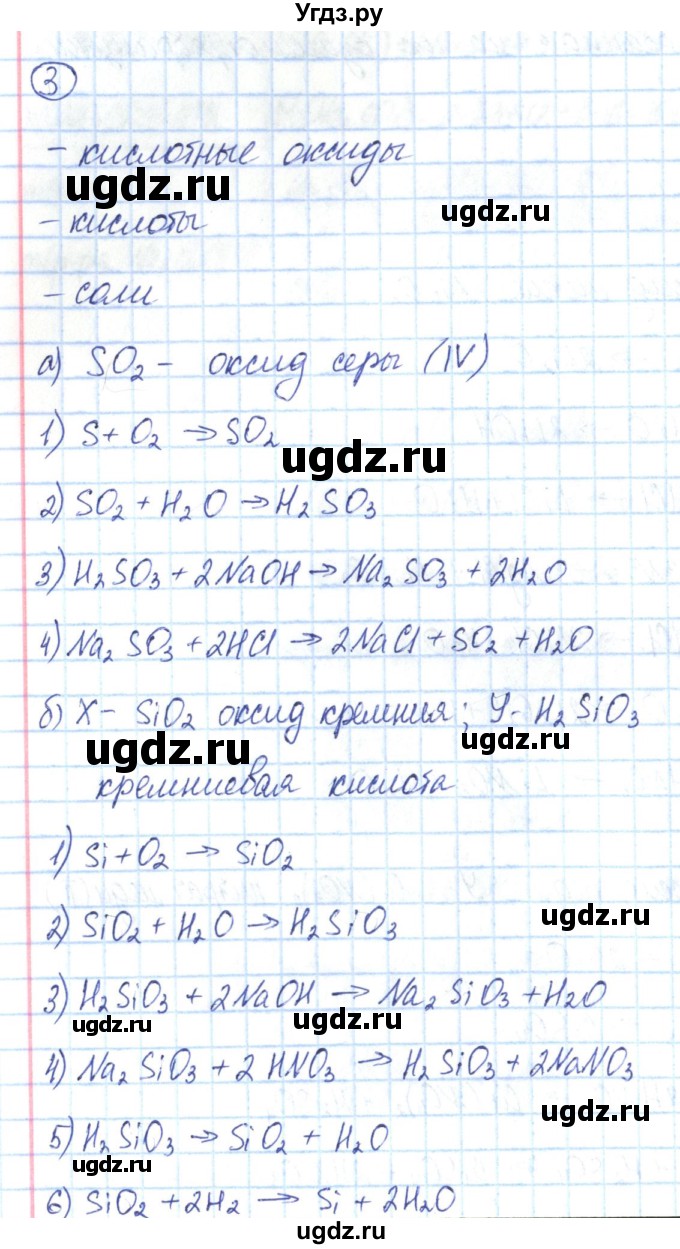 Угдз.ру
3
- кислотные оксиды
ugdz.ru
ugdz.ru
- кислоты
- соли
а) SO2 - оксид серы (IV)
1) S + O2 → SO2
ugdz.ru
2) SO2 + H2O → H2SO3
3) H2SO3 + 2NaOH → Na2SO3 + 2H2O
4) Na2SO3 + 2HCl → 2NaCl + SO2 + H2O
б) X - SiO2 оксид кремния; У - H2SiO3
ugdz.ru
ugdz.ru
кремниевая кислота
1) Si + O2 → SiO2
2) SiO2 + H2O → H2SiO3
ugdz.ru
3) H2SiO3 + 2NaOH → Na2SiO3 + H2O
ugdz.ru
ugdz.ru
4) Na2SiO3 + 2HNO3 → H2SiO3 + 2NaNO3
ugdz.ru
5) H2SiO3 → SiO2 + H2O
ugdz.ru
6) SiO2 + 2H2 → Si + 2H2O
ugdz.ru